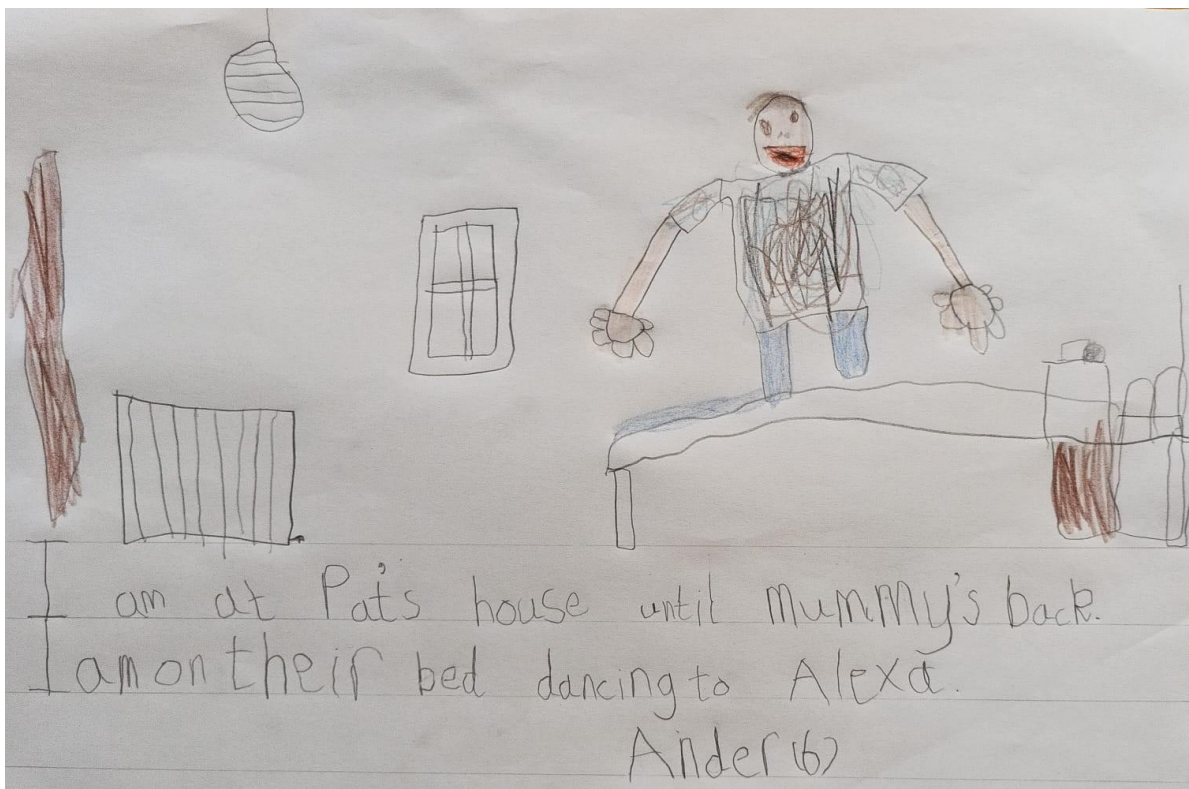 I am at Pat's house until Mummy's back.
I am on their bed dancing to Alexa.
Ander (6)